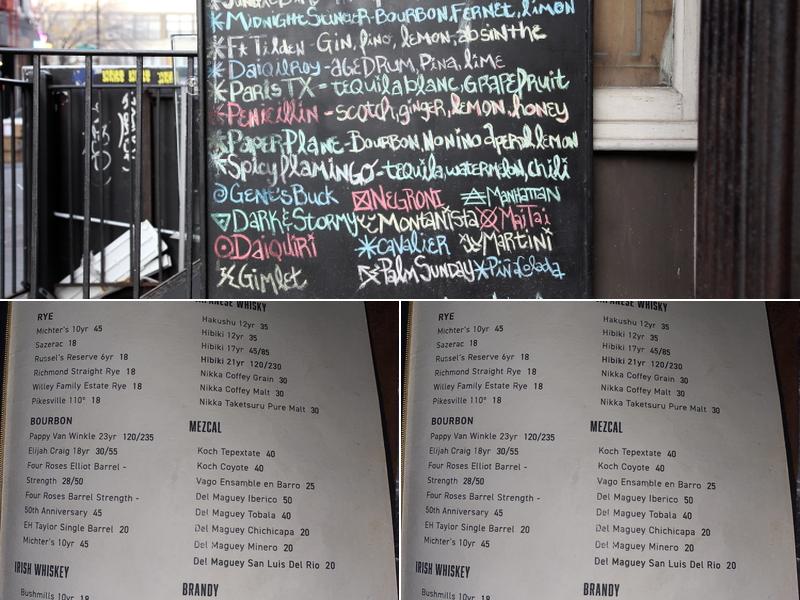 MIDNIGHT STINGER-BOURBON, FERNET, LIMON
Tilden - GIN, fino, lemon, absinthe
DaiqilRoy - aGED RUM, PINa, lime
PARIS TX - tequila blanc, GRAPEfruit
PENicillin - scotch, ginger, lemon, honey
PAPER PLANE - BOURBON, NONINO aperol, lemon
SPICY flaminGO - tequila, watermelon, chili
GENE'S BucK NEGRONI MANHATTAN
DARK & STORMY MONTANISTA MaiTai
DAIQUIRI CAVALIER MARTINI
GIMLET PALM SUNDAY PIÑA COLADA
RYE
Michter's 10yr 45
Sazerac 18
Russel's Reserve 6yr 18
Richmond Straight Rye 18
Willey Family Estate Rye 18
Pikesville 110° 18
BOURBON
Pappy Van Winkle 23yr 120/235
Elijah Craig 18yr 30/55
Four Roses Elliot Barrel -
Strength 28/50
Four Roses Barrel Strength -
50th Anniversary 45
EH Taylor Single Barrel 20
Michter's 10yr 45
IRISH WHISKEY
Bushmills 10yr 18
JAPANESE WHISKY
Hakushu 12yr 35
Hibiki 12yr 35
Hibiki 17yr 45/85
Hibiki 21yr 120/230
Nikka Coffey Grain 30
Nikka Coffey Malt 30
Nikka Taketsuru Pure Malt 30
MEZCAL
Koch Tepextate 40
Koch Coyote 40
Vago Ensamble en Barro 25
Del Maguey Iberico 50
Del Maguey Tobala 40
Del Maguey Chichicapa 20
Del Maguey Minero 20
Del Maguey San Luis Del Rio 20
BRANDY
RYE
Michter's 10yr 45
Sazerac 18
Russel's Reserve 6yr 18
Richmond Straight Rye 18
Willey Family Estate Rye 18
Pikesville 110° 18
BOURBON
Pappy Van Winkle 23yr 120/235
Elijah Craig 18yr 30/55
Four Roses Elliot Barrel -
Strength 28/50
Four Roses Barrel Strength -
50th Anniversary 45
EH Taylor Single Barrel 20
Michter's 10yr 45
IRISH WHISKEY
Bushmills 10yr 18
JAPANESE WHISKY
Hakushu 12yr 35
Hibiki 12yr 35
Hibiki 17yr 45/85
Hibiki 21yr 120/230
Nikka Coffey Grain 30
Nikka Coffey Malt 30
Nikka Taketsuru Pure Malt 30
MEZCAL
Koch Tepextate 40
Koch Coyote 40
Vago Ensamble en Barro 25
Del Maguey Iberico 50
Del Maguey Tobala 40
Del Maguey Chichicapa 20
Del Maguey Minero 20
Del Maguey San Luis Del Rio 20
BRANDY